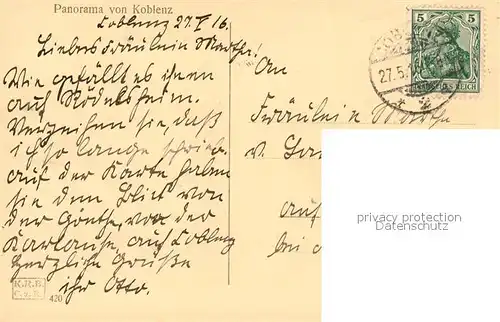 Panorama von Koblenz
Coblenz 27.V 16.
Liebes Fräulein Marthe!
Wie gefällt es ihnen
auf Rödelheim.
Verzeihen sie, daß
ich so lange
auf der Karte haben
sie den Blick von
der Goethe, von der
Kartause, auf Coblenz
herzliche Grüße
ihr Otto.
An
Fräulein Marthe
v.
auf
bei
5 5
DEUTSCHES REICH
27.5.16
privacy protection
Datenschutz
K.R.B.
420